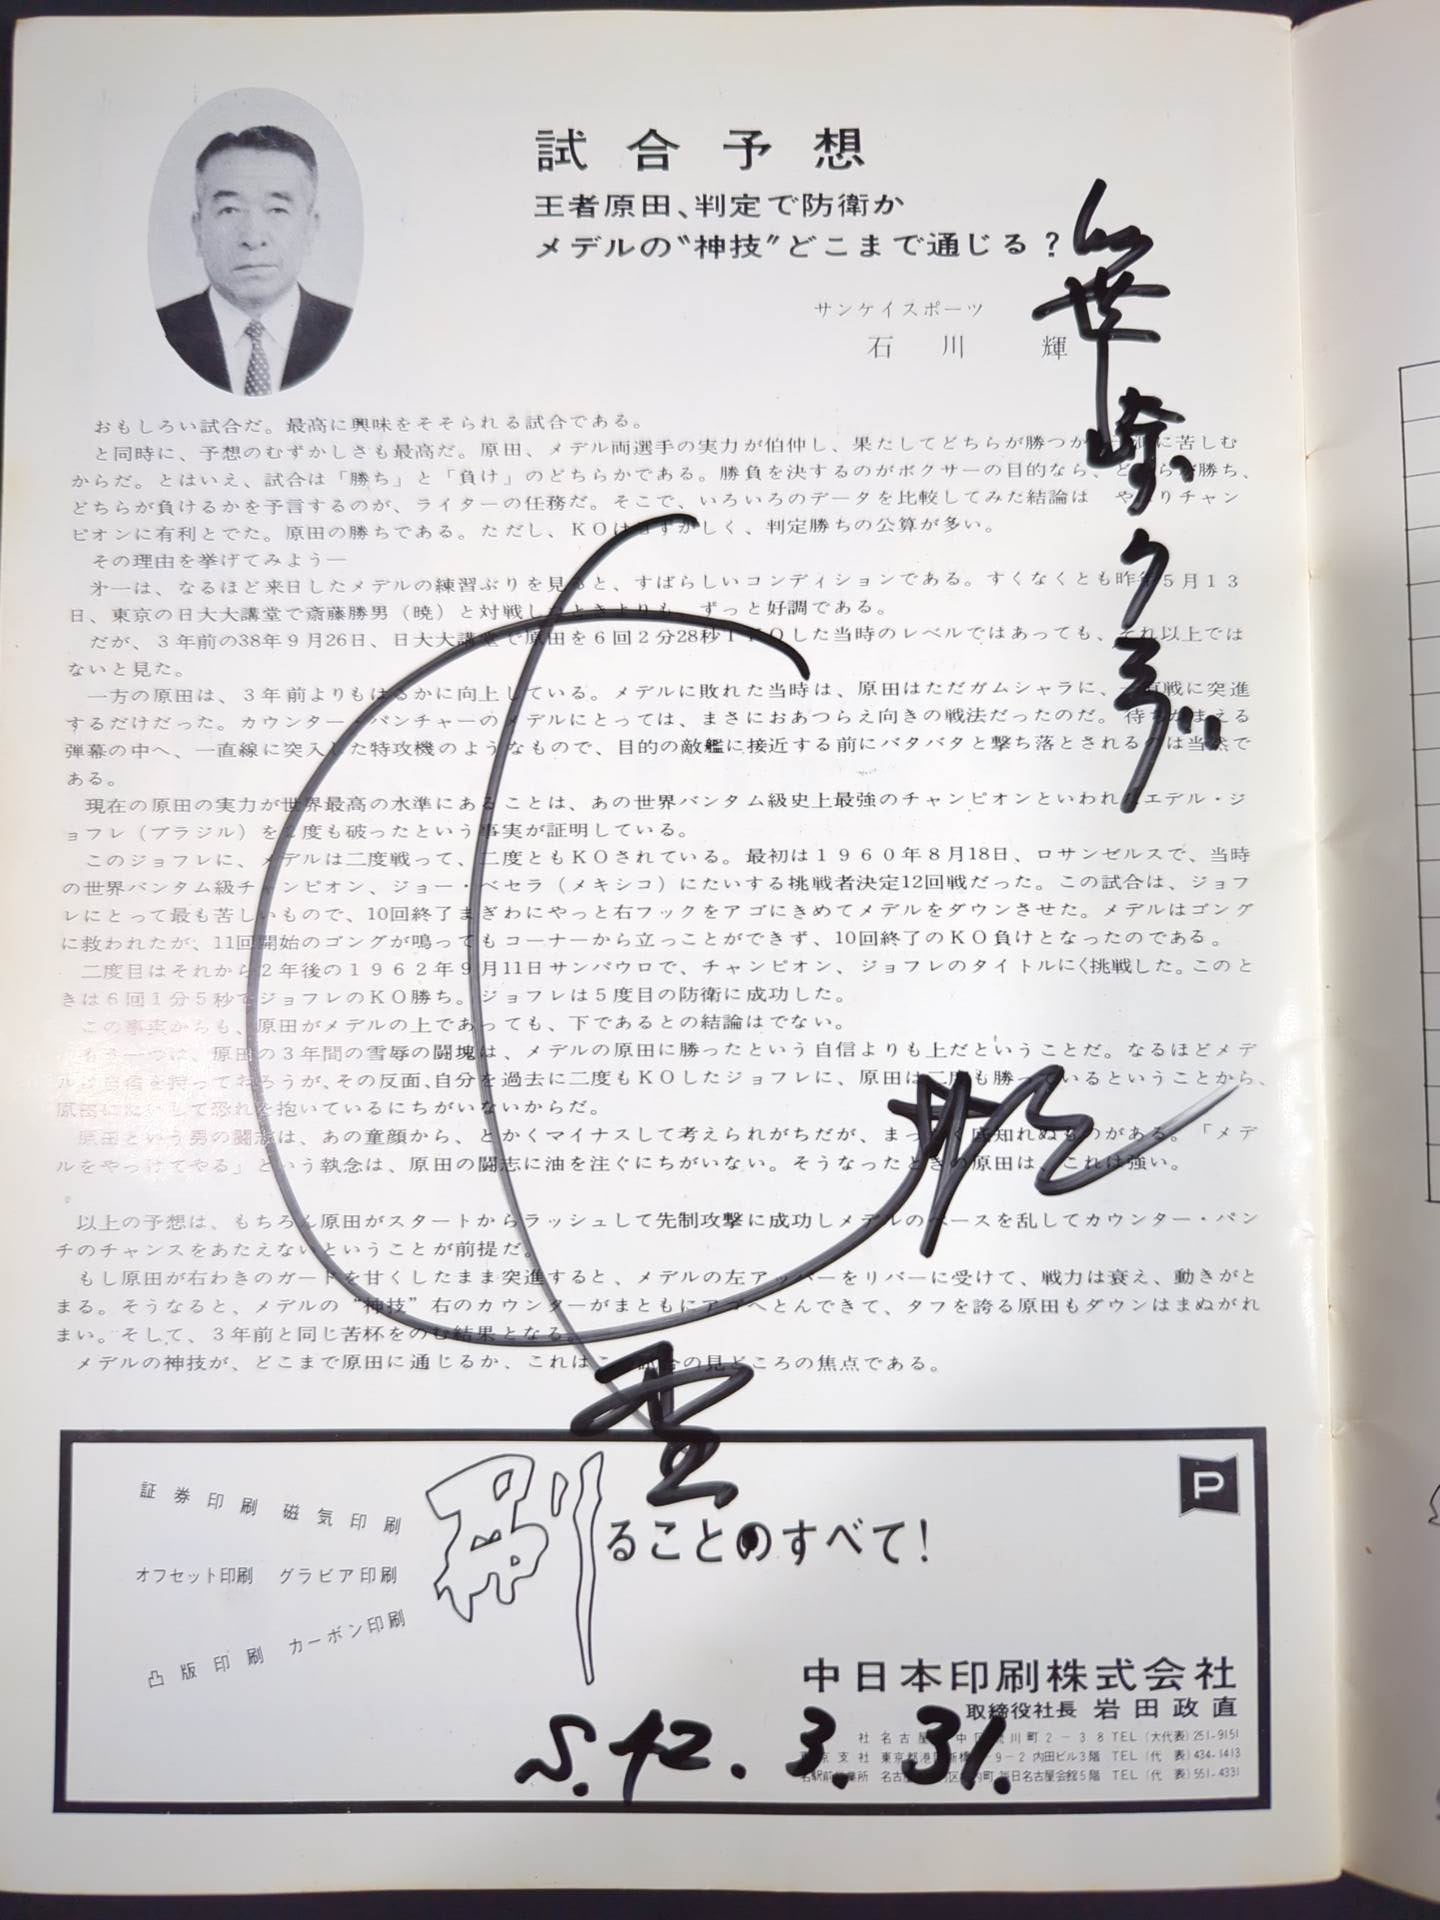 試合予想
王者原田、判定で防衛か
メデルの“神技”どこまで通じる？
サンケイスポーツ
石川 輝
おもしろい試合だ。最高に興味をそそられる試合である。
と同時に、予想のむずかしさも最高だ。原田、メデル両選手の実力が伯仲し、果たしてどちらが勝つか に苦しむ
からだ。とはいえ、試合は「勝ち」と「負け」のどちらかである。勝負を決するのがボクサーの目的なら、どちらが勝ち、
どちらが負けるかを予言するのが、ライターの任務だ。そこで、いろいろのデータを比較してみた結論は やはりチャン
ピオンに有利とでた。原田の勝ちである。ただし、KOはむずかしく、判定勝ちの公算が多い。
その理由を挙げてみよう―
才一は、なるほど来日したメデルの練習ぶりを見ると、すばらしいコンディションである。すくなくとも昨年5月13
日、東京の日大大講堂で斎藤勝男（暁）と対戦したときよりも、ずっと好調である。
だが、3年前の38年9月26日、日大大講堂で原田を6回2分28秒TKOした当時のレベルではあっても、それ以上では
ないと見た。
一方の原田は、3年前よりもはるかに向上している。メデルに敗れた当時は、原田はただガムシャラに、 直戦に突進
するだけだった。カウンター・パンチャーのメデルにとっては、まさにおあつらえ向きの戦法だったのだ。待ちかまえる
弾幕の中へ、一直線に突入した特攻機のようなもので、目的の敵艦に接近する前にバタバタと撃ち落とされるのは当然で
ある。
現在の原田の実力が世界最高の水準にあることは、あの世界バンタム級史上最強のチャンピオンといわれたエデル・ジ
ョフレ（ブラジル）を2度も破ったという事実が証明している。
このジョフレに、メデルは二度戦って、二度ともKOされている。最初は1960年8月18日、ロサンゼルスで、当時
の世界バンタム級チャンピオン、ジョー・ベセラ（メキシコ）にたいする挑戦者決定12回戦だった。この試合は、ジョフ
レにとって最も苦しいもので、10回終了まぎわにやっと右フックをアゴにきめてメデルをダウンさせた。メデルはゴング
に救われたが、11回開始のゴングが鳴ってもコーナーから立つことができず、10回終了のKO負けとなったのである。
二度目はそれから2年後の1962年9月11日サンパウロで、チャンピオン、ジョフレのタイトルにく挑戦した。このと
きは6回1分5秒でジョフレのKO勝ち。ジョフレは5度目の防衛に成功した。
この事実からも、原田がメデルの上であっても、下であるとの結論はでない。
もう一つは、原田の3年間の雪辱の闘塊は、メデルの原田に勝ったという自信よりも上だということだ。なるほどメデ
ルは自信を持っておろうが、その反面、自分を過去に二度もKOしたジョフレに、原田は二度も勝っているということから、
原田にたいして恐れを抱いているにちがいないからだ。
原田という男の闘志は、あの童顔から、とかくマイナスして考えられがちだが、まったく底知れぬものがある。「メデ
ルをやっけてやる」という執念は、原田の闘志に油を注ぐにちがいない。そうなったときの原田は、これは強い。
。
以上の予想は、もちろん原田がスタートからラッシュして先制攻撃に成功しメデルのペースを乱してカウンター・パン
チのチャンスをあたえないということが前提だ。
もし原田が右わきのガードを甘くしたまま突進すると、メデルの左アッパーをリバーに受けて、戦力は衰え、動きがと
まる。そうなると、メデルの“神技”右のカウンターがまともにアゴへとんできて、タフを誇る原田もダウンはまぬがれ
まい。そして、3年前と同じ苦杯をのむ結果となる。
メデルの神技が、どこまで原田に通じるか、これはこの試合の見どころの焦点である。
証券印刷 磁気印刷
オフセット印刷 グラビア印刷
凸版印刷 カーボン印刷
刷ることのすべて！
P
中日本印刷株式会社
取締役社長 岩田政直
社 名古屋 中区 川町2-38 TEL（大代表）251-9151
東京支社 東京都港区新橋 -9-2 内田ビル3階 TEL（代表）434-1413
名駅前営業所 名古屋 区 内町 毎日名古屋会館5階 TEL（代表）551-4331
S.42.3.31.